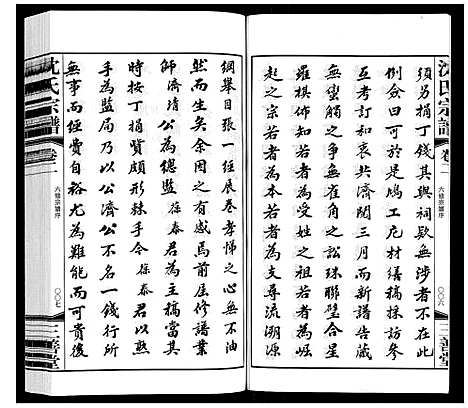 沈氏宗譜
卷一
六修宗譜序
〇〇六
三善堂
須另捐丁錢其與祠歐無涉者不在此
例僉曰可於是鳩工庀材繕稿採訪參
考訂和衷共濟閱三月而新譜告蕆
無蠻觸之爭無雀角之訟珠聯璧合星
羅棋布若者為本宗若者為支裔若者為崛
起之宗若者為受姓之祖若者為支尋流溯源
綱舉目張一經展卷孝悌之心無不油
然而生矣余因之有感焉前屆修譜業
師濟清公為總監葆泰君為主稿當其
時按丁捐貲頗形棘手今葆泰君以熟
手為監局乃以公濟公不名一錢行所
無事而經費自裕尤為難能而可貴後
沈氏宗譜
卷一
六修宗譜序
〇〇七
三善堂